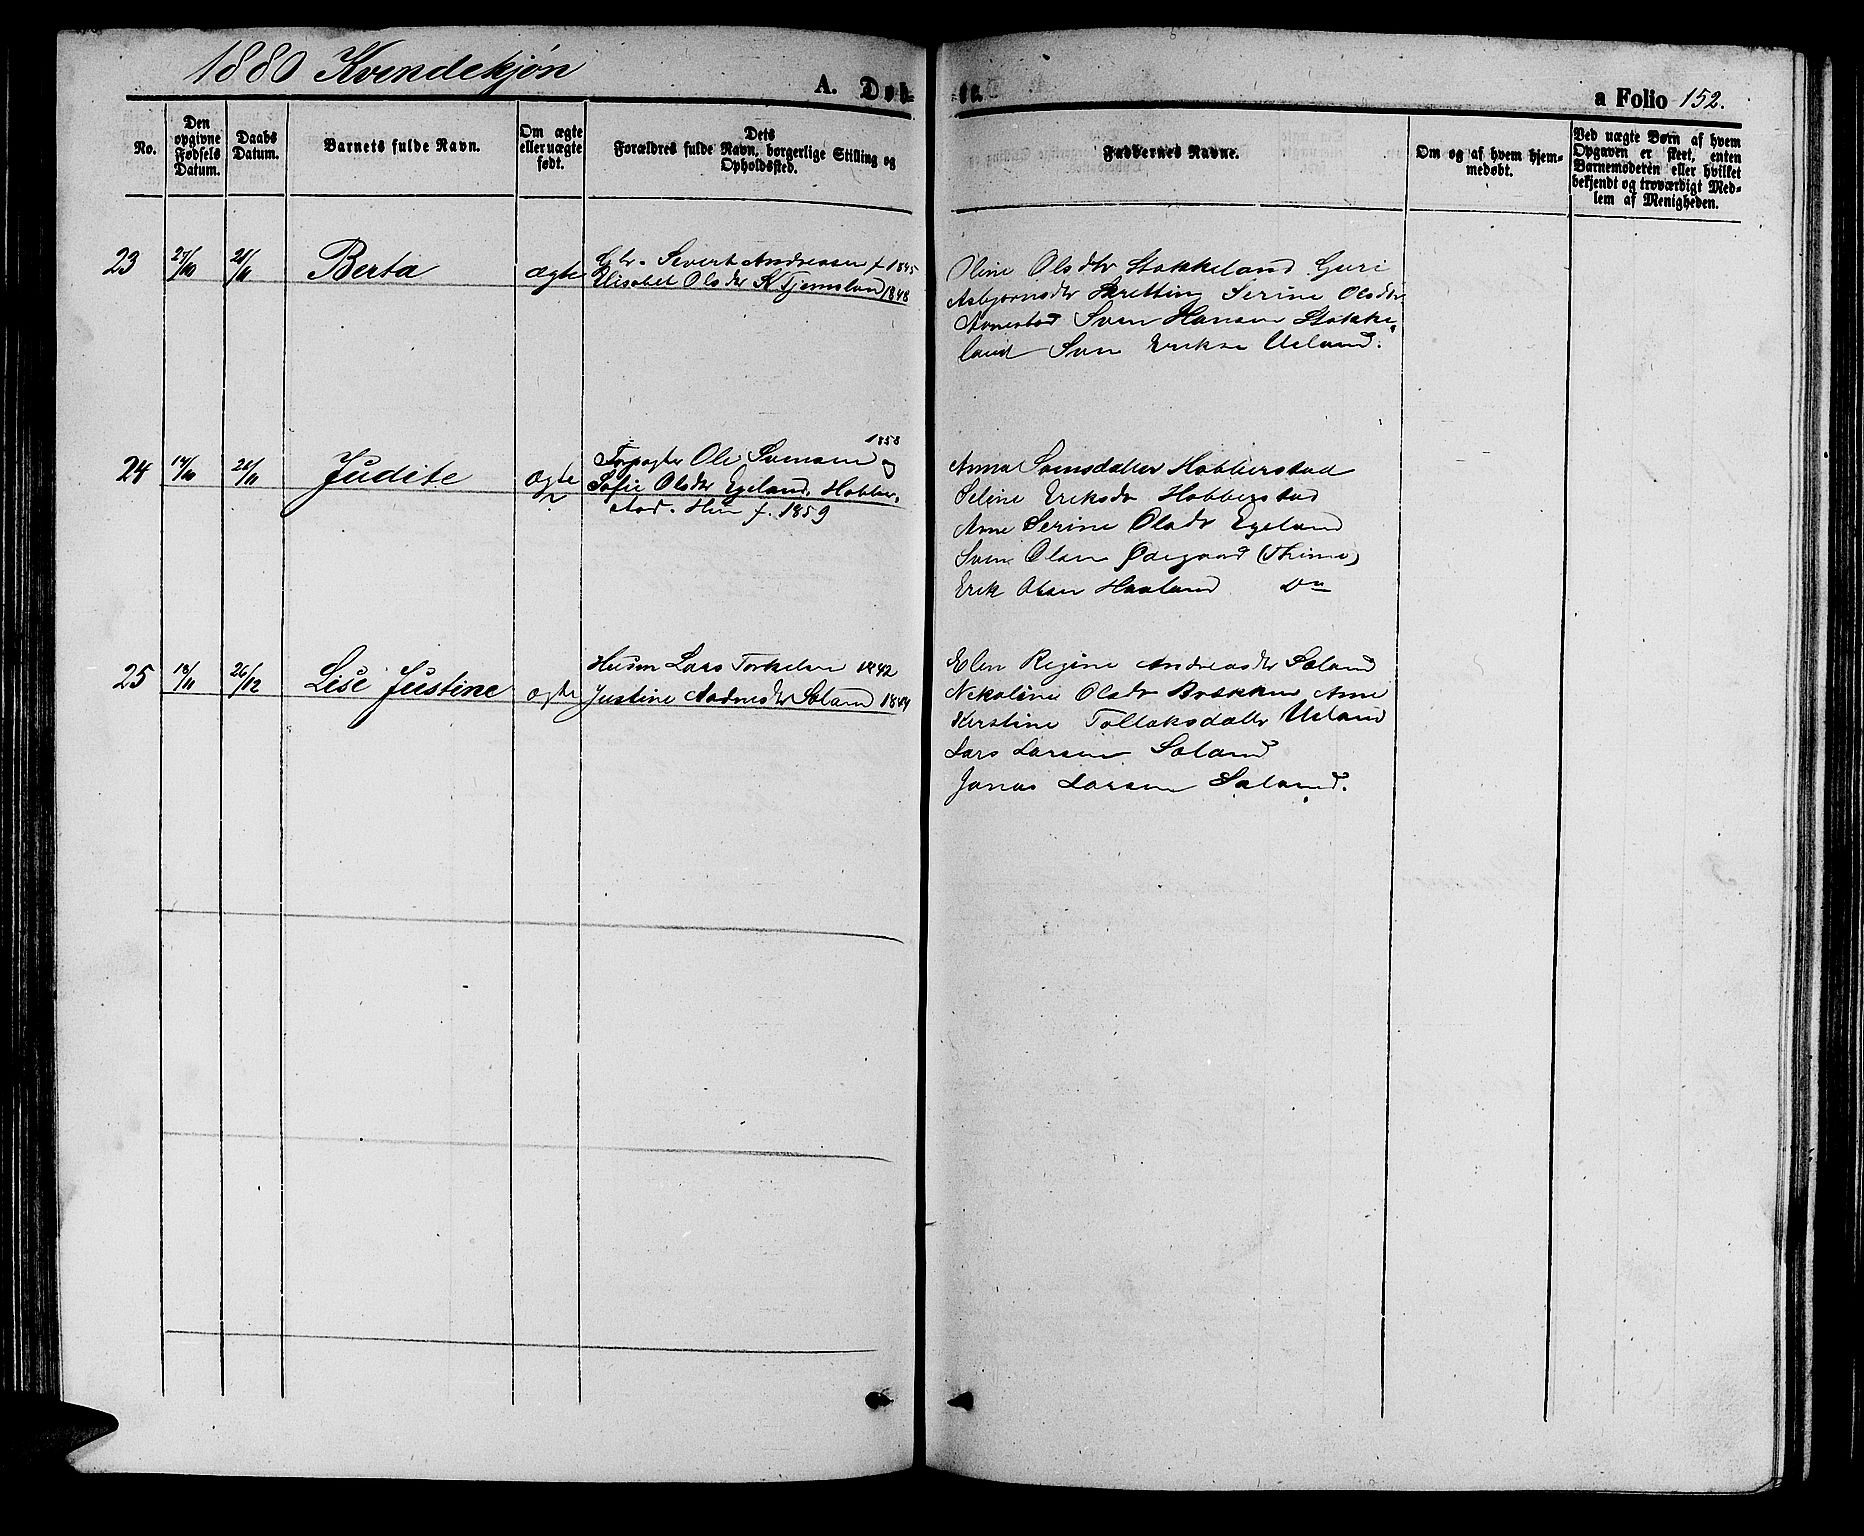 1880 Kvendekjøn
A. Døb-
te.
a Folio 152.
No.
Den opgivne Fødsels Datum.
Daabs Datum.
Barnets fulde Navn.
Om ægte eller uægte født.
Dets Forældres fulde Navn, borgerlige Stilling og Opholdssted.
Faddernes Navne.
Om og af hvem hjem-
medøbt.
Ved uægte Børn af hvem
Opgaven er skeet, enten
Barnemoderen eller hvilket
bekjendt og troværdigt Med-
lem af Menigheden.
23 27/10 21/11 Berta ægte
Gbr. Sivert Andreasen f 1845
Elisabet Olsdtr K Tjemsland 1848
Oline Olsdtr Stokkeland Guri
Asbjørnsdtr Skretting Serine Olsdtr
Aanestad Sven Hansen Stokke-
land Sven Eriksen Ueland.
24 14/10 26/11 Judite ægte
1858
Forpagter Ole Svensen og
Sofie Olsdtr Egeland, Hobber-
stad. Hun f. 1859
Anna Svensdatter Hobberstad
Seline Eriksdtr Hobberstad
Ane Serine Olsdtr Egeland
Sven Olsen Ødegaard (Thime)
Erik Olsen Haaland Do
25 13/11 26/12 Lise Justine ægte
Husm Lars Torkelsen 1842
Justine Aadnesdtr Søland 1844
Elen Regine Andreasdtr Søland
Nikoline Olsdtr Brekken Ane
Kirstine Tollaksdattr Ueland
Lars Larsen Søland
Jonas Larsen Søland.